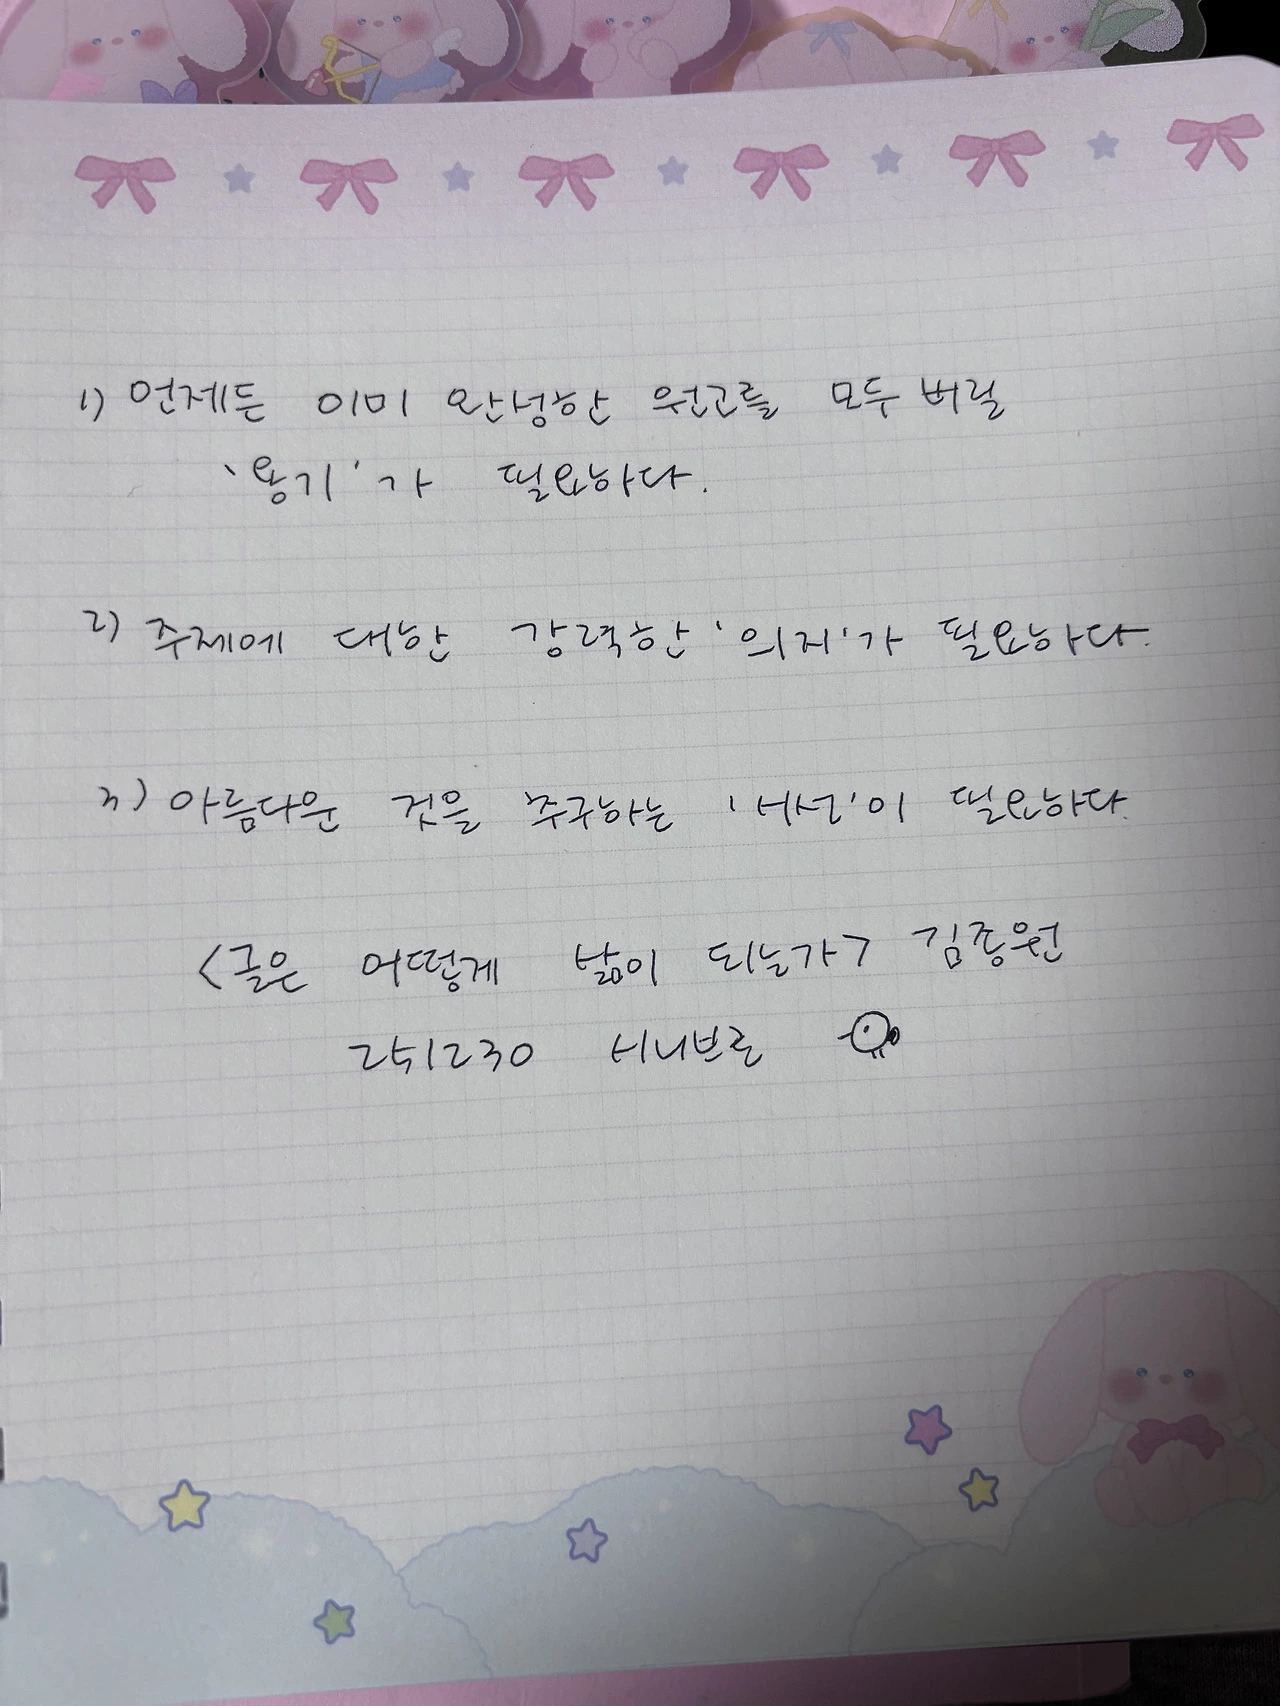 1) 언제든 이미 완성한 원고를 모두 버릴
'용기'가 필요하다.
2) 주제에 대한 강력한 '의지'가 필요하다.
3) 아름다운 것을 추구하는 '시선'이 필요하다.
<글은 어떻게 삶이 되는가> 김종원
251230 시니브로